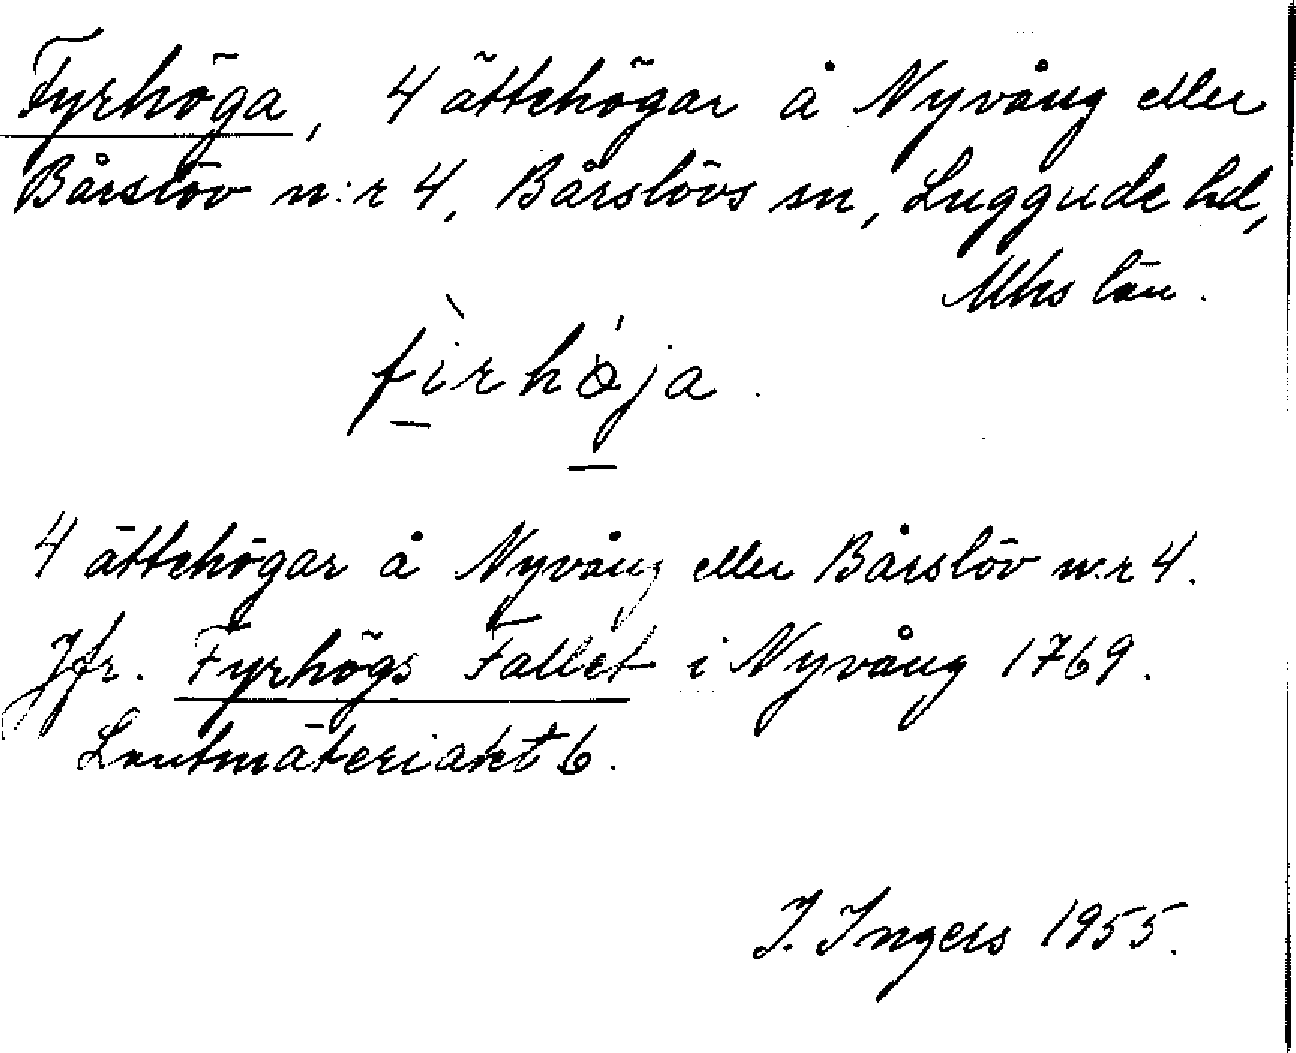 Fyrhöga, 4 ättehögar å Nyvång eller
Bårslöv n:r 4, Bårslövs sn, Luggude hd,
Mhs län.
fìrhǿja.
4 ättehögar å Nyvång eller Bårslöv n:r 4.
Jfr. Fyrhögs Fallet i Nyvång 1769.
Lantmäteriakt 6.
I. Ingers 1955.